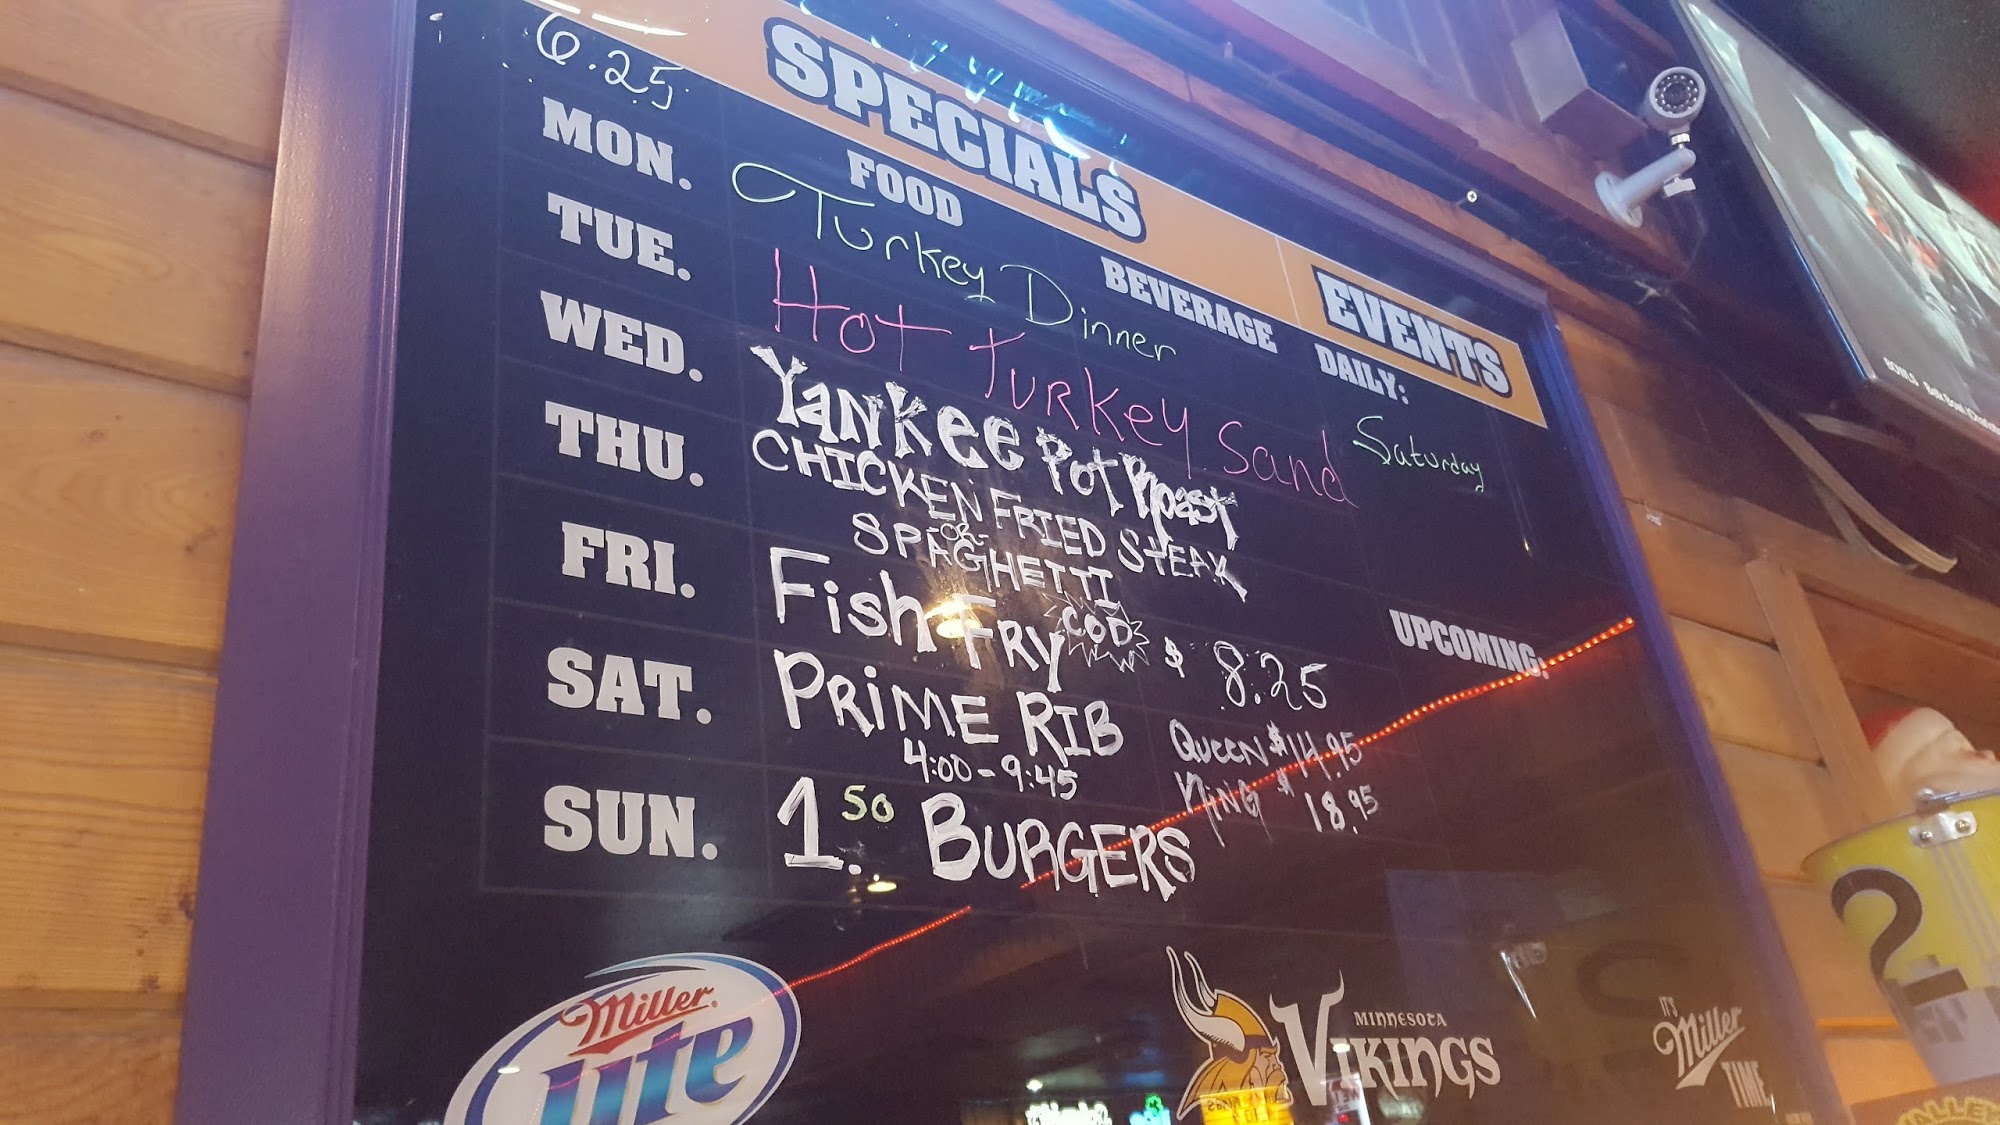 6.25
SPECIALS
EVENTS
FOOD
BEVERAGE
DAILY:
MON. Turkey Dinner
TUE. Hot Turkey Sand
Saturday
WED. Yankee Pot Roast
THU. CHICKEN FRIED STEAK
-OR-
SPAGHETTI
FRI. Fish FRY COD $ 8.25
UPCOMING:
SAT. PRIME RIB
4:00 - 9:45
QUEEN $14.95
KING $18.95
SUN. 1.50 BURGERS
Miller
Lite
MINNESOTA
VIKINGS
IT'S
Miller
TIME
2